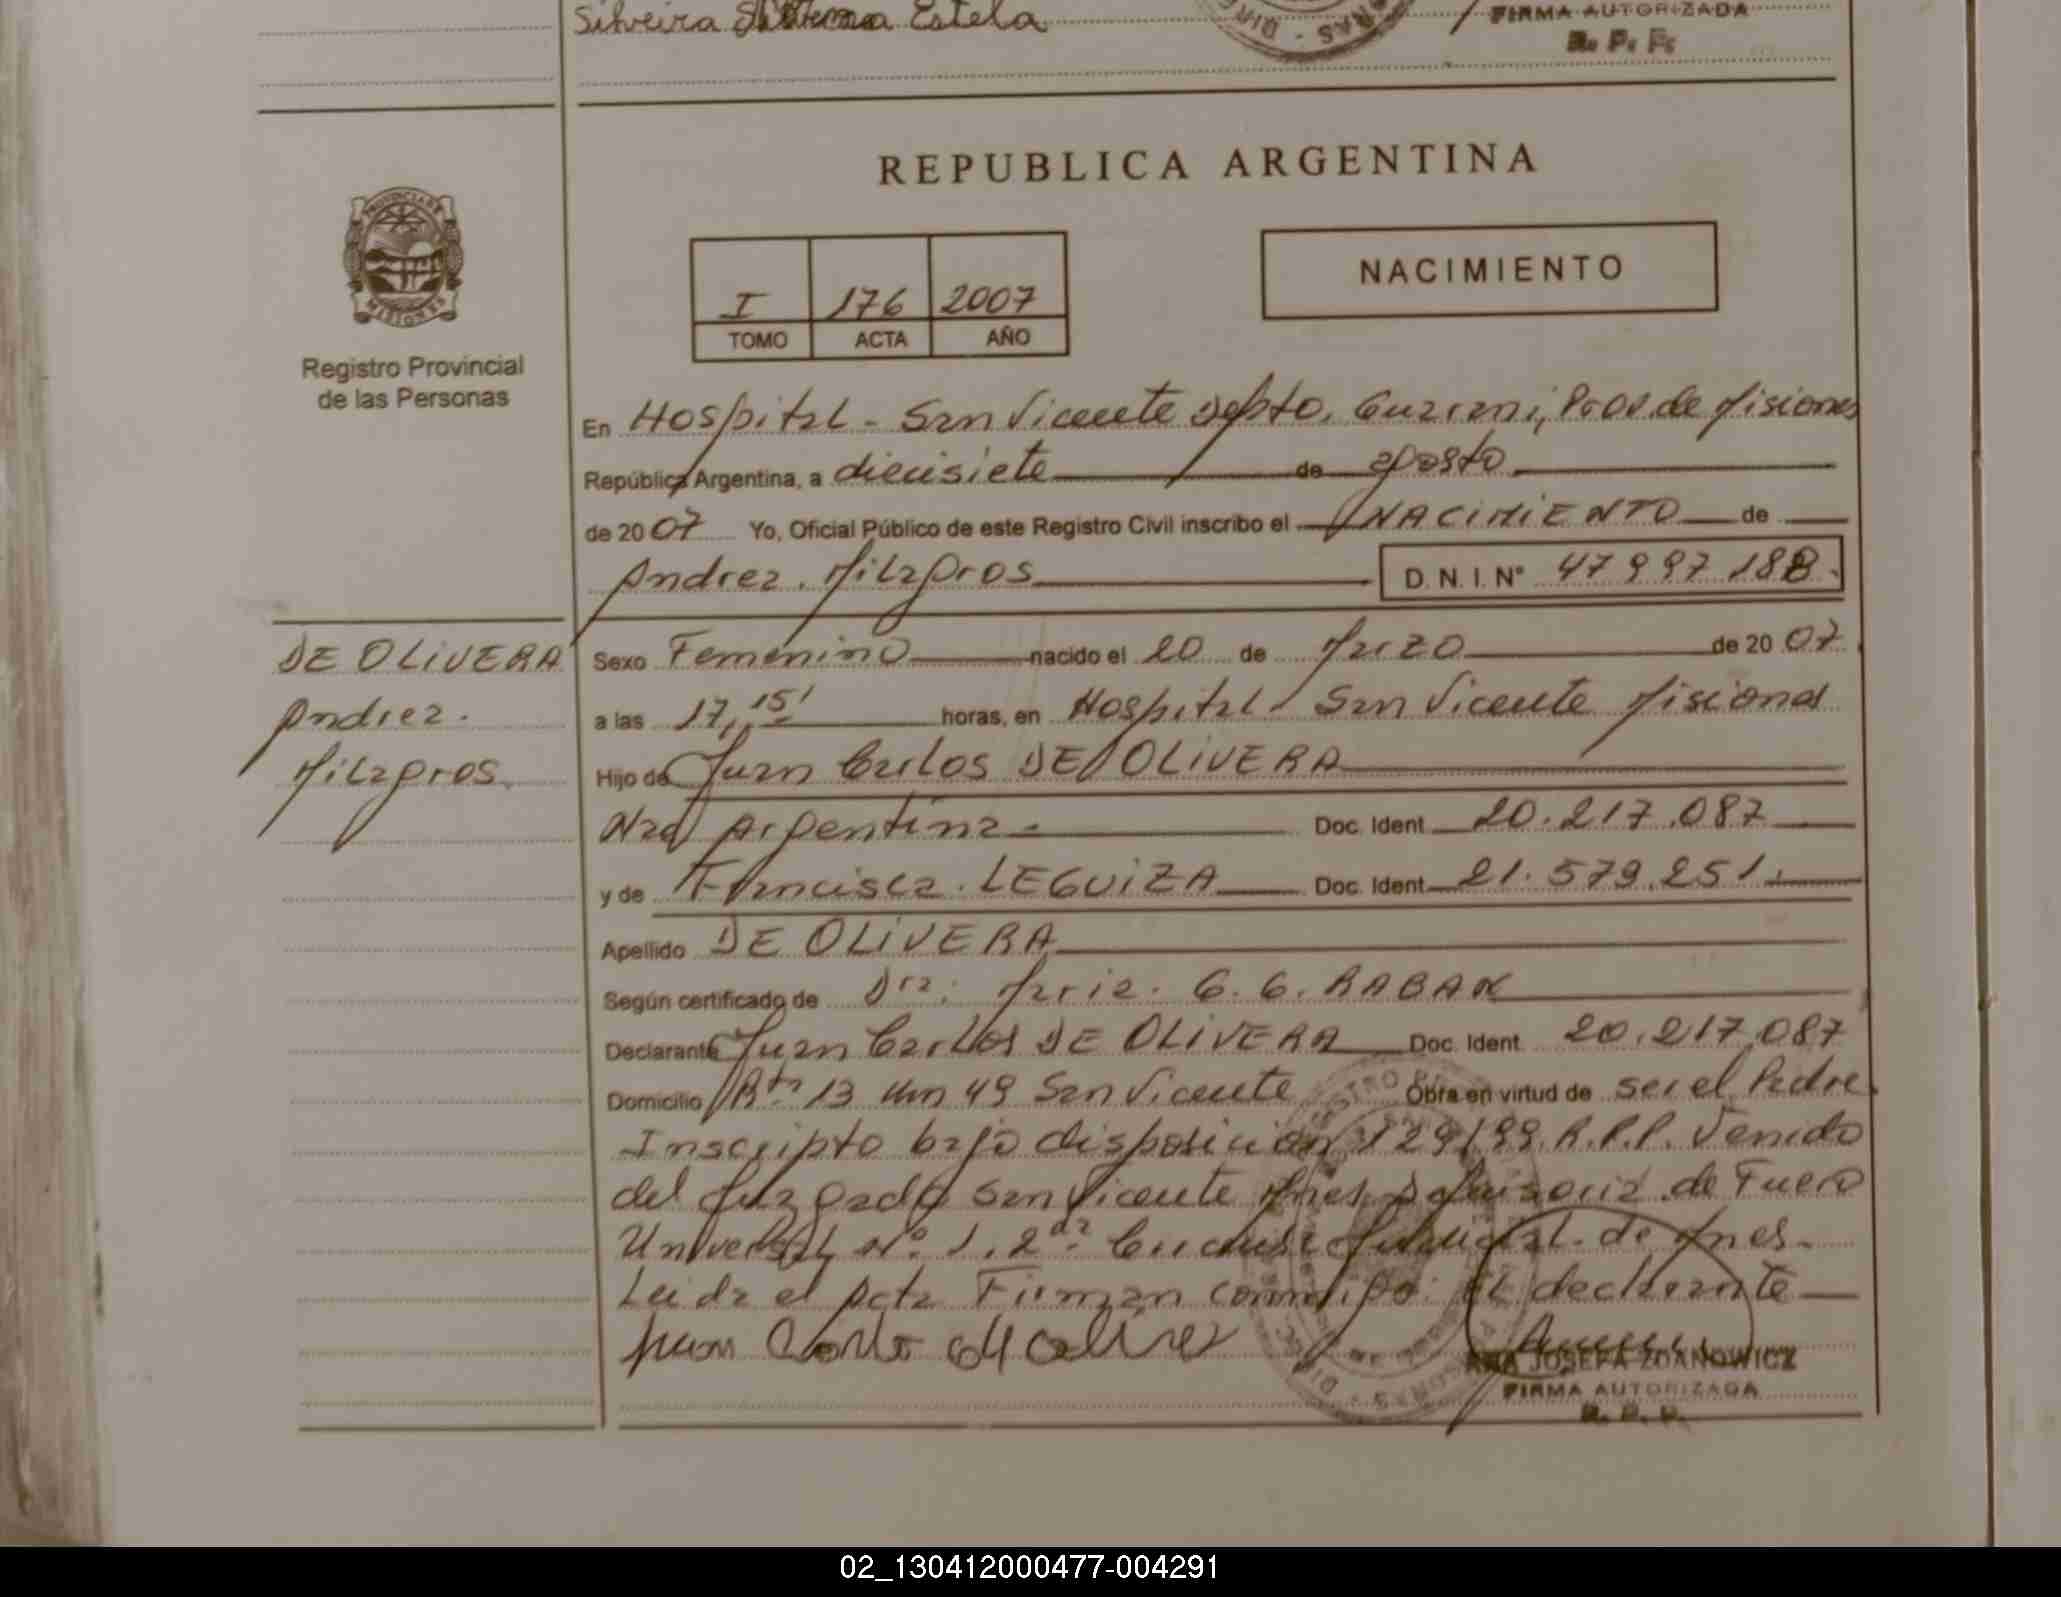 Silveira Estela
FIRMA AUTORIZADA
R. P. P.
REPUBLICA ARGENTINA
PROVINCIA DE
MISIONES
Registro Provincial
de las Personas
I 176 2007
TOMO ACTA AÑO
NACIMIENTO
En Hospital - San Vicente Depto. Guarani, Prov. de Misiones
República Argentina, a diecisiete de agosto
de 2007 Yo, Oficial Público de este Registro Civil inscribo el NACIMIENTO de
Andrea Milagros D. N. I. N° 47 997 188
DE OLIVERA
Andrea
Milagros
Sexo Femenino nacido el 20 de Marzo de 2007
a las 17,15' horas, en Hospital - San Vicente Misiones
Hijo de Juan Carlos DE OLIVERA
Nac Argentina Doc. Ident 20.217.087
y de Francisca LEGUIZA Doc. Ident 21.579.251
Apellido DE OLIVERA
Según certificado de Dra. Maria G. G. RABAK
Declarante Juan Carlos DE OLIVERA Doc. Ident 20.217.087
Domicilio Rta 13 Km 49 San Vicente Obra en virtud de ser el Padre
Inscripto bajo disposicion 129/99 R.P.P. Venido
del Juzgado San Vicente Mnes. Defensoria de Fuero
Universal N° 1, 2da Circunsc. Judicial de Mnes.
Leida el Acta Firman conmigo: El declarante
ANA JOSEFA ZDANOWICZ
FIRMA AUTORIZADA
R. P. P.
02_130412000477-004291